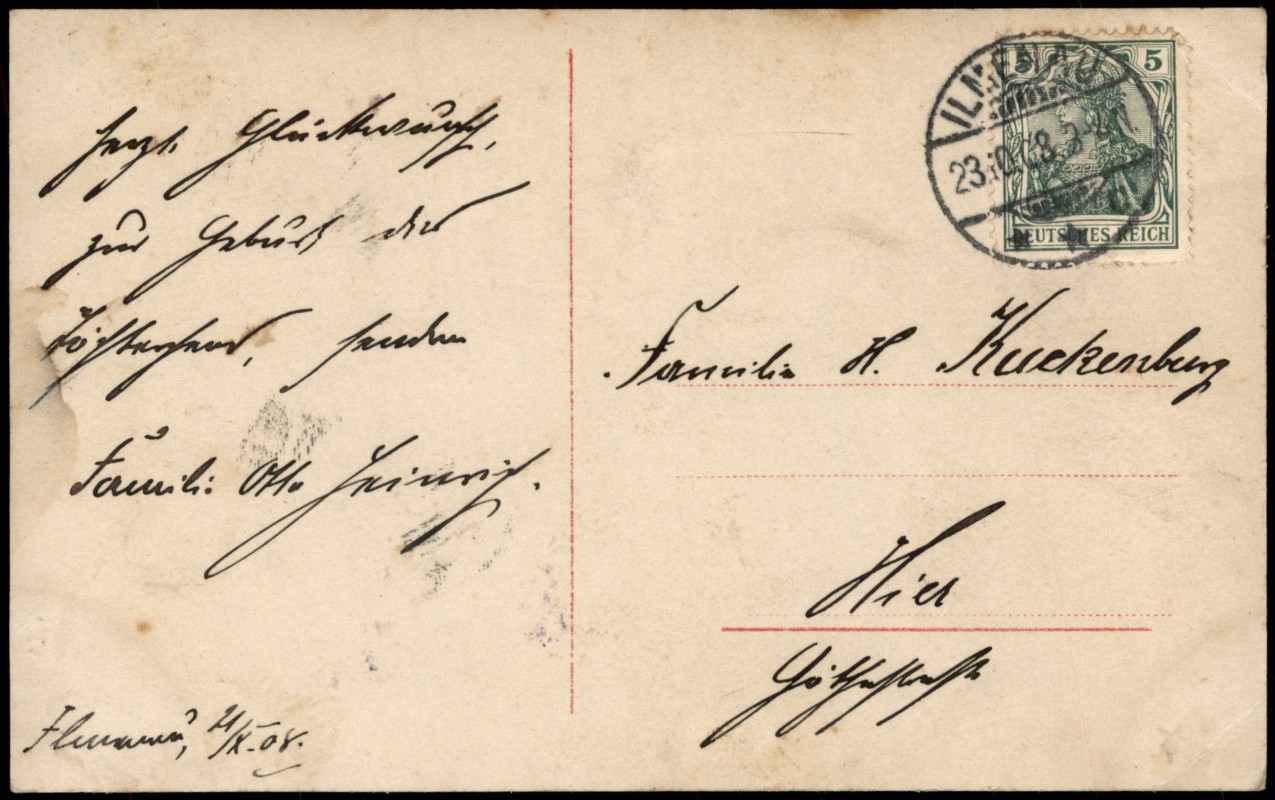 herzl. Glückwunsch,
zur Geburt des
Töchterchens, senden
Familie Otto Heinrich.
Ilmenau, 21/X. 08.
ILMENAU
23.10.08. 3-4 N.
5 5
DEUTSCHES REICH
Familie H. Kuckenburg
Hier
Göthestraße